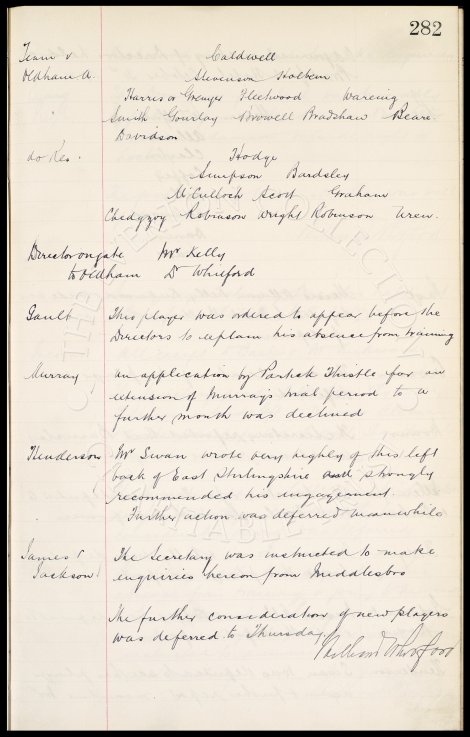 282
Team v Caldwell
Oldham A. Stevenson Holbem
Harris or Grenyer Fleetwood Wareing
Smith Gourlay Browell Bradshaw Beare
Davidson
do Res. Hodge
Simpson Bardsley
McCulloch Scott Graham
Chedgzoy Robinson Wright Robinson Uren.
Director on gate Mr Kelly
to Oldham Dr Whitford
Gault This player was ordered to appear before the
Directors to explain his absence from training
Murray An application by Partick Thistle for an
extension of Murray's trial period to a
further month was declined
Henderson Mr Swan wrote very highly of this left
back of East Stirlingshire and strongly
recommended his engagement.
Further action was deferred meanwhile
James The Secretary was instructed to make
Jackson enquiries hereon from Middlesbro
The further consideration of new players
was deferred to Thursday
Whitford